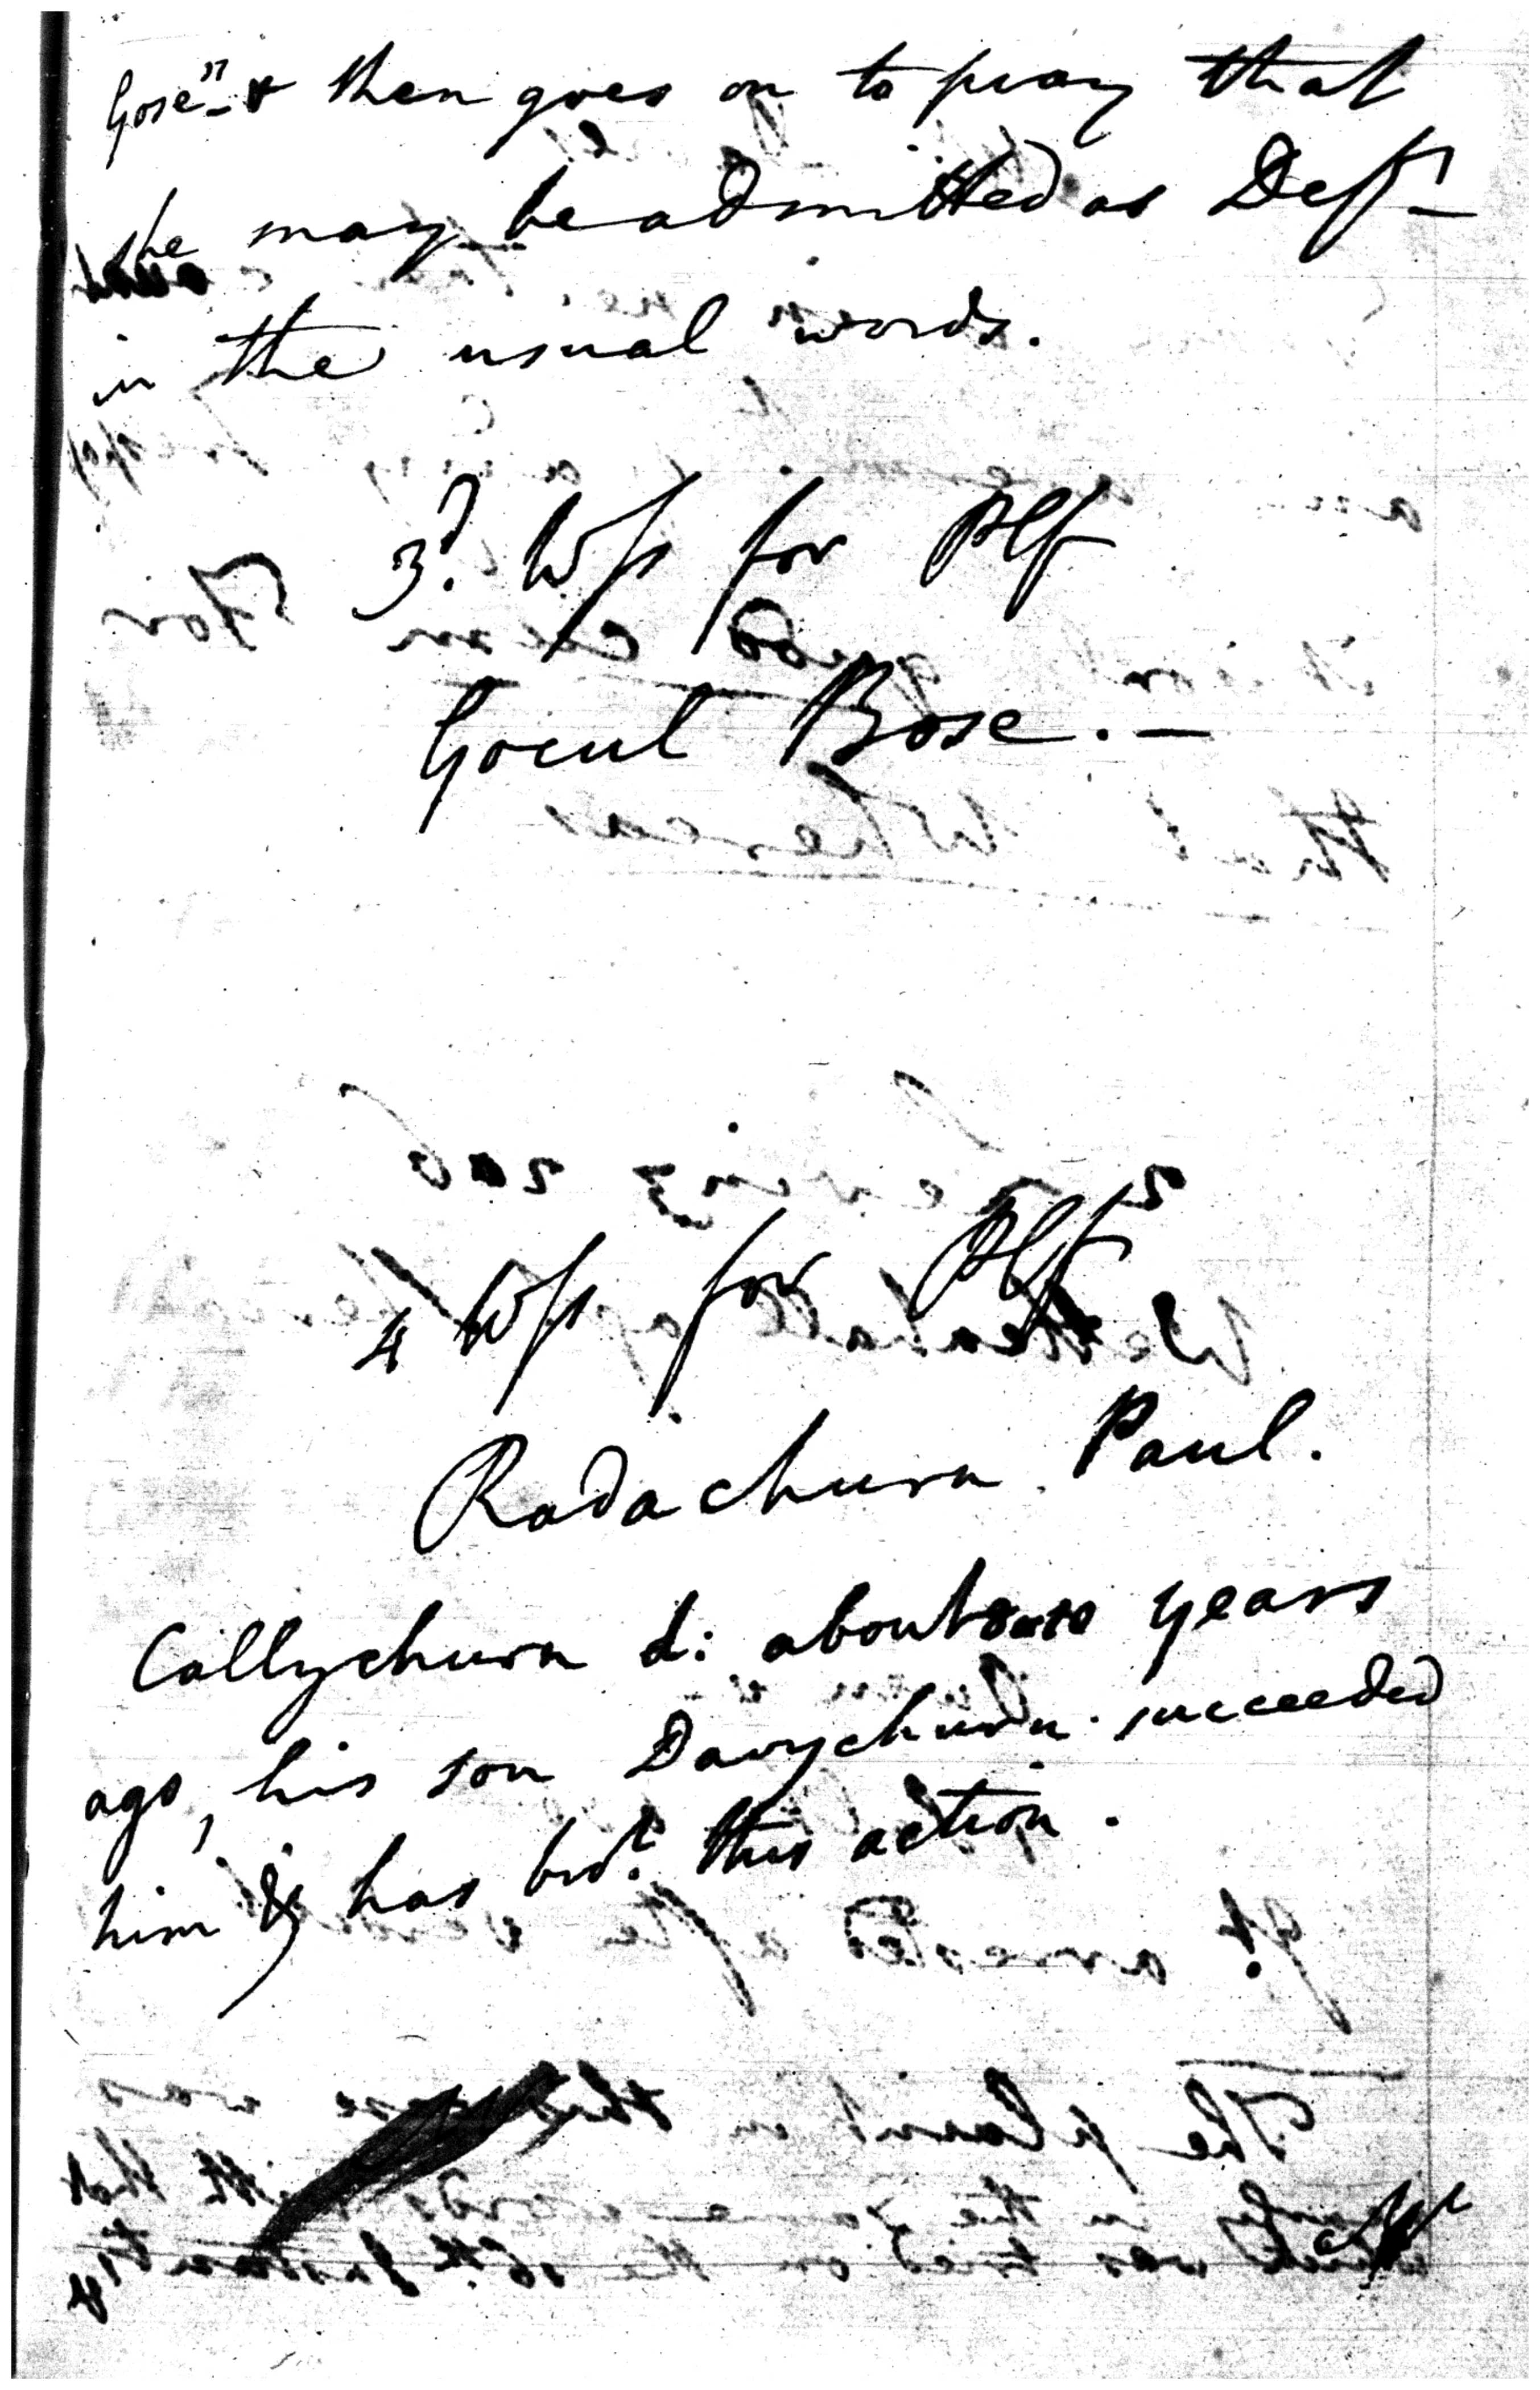 Gose" & then goes on to pray that
she may be admitted as Deft
in the usual words.
3d. Wss for Plf
Gocul Bose. —
4 Wss for Plf
Radachurn Paul.
Callychurn d: about years
ago, his son Davychurn succeeded
him & has brt. this action.